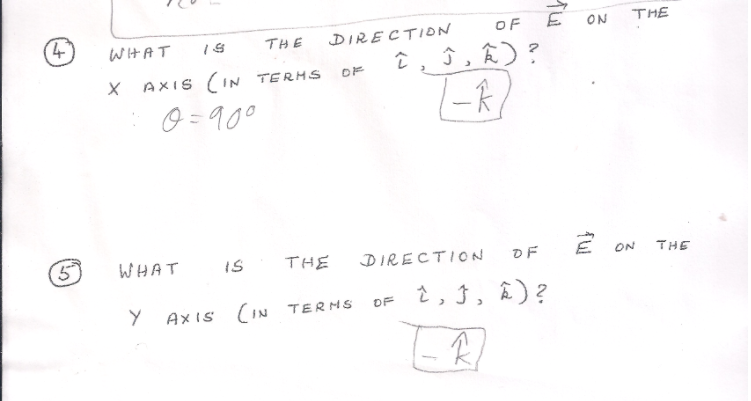 ④ WHAT IS THE DIRECTION OF E⃗ ON THE
X AXIS (IN TERMS OF î, ĵ, k̂)?
θ = 90°
-k̂
⑤ WHAT IS THE DIRECTION OF E⃗ ON THE
Y AXIS (IN TERMS OF î, ĵ, k̂)?
-k̂